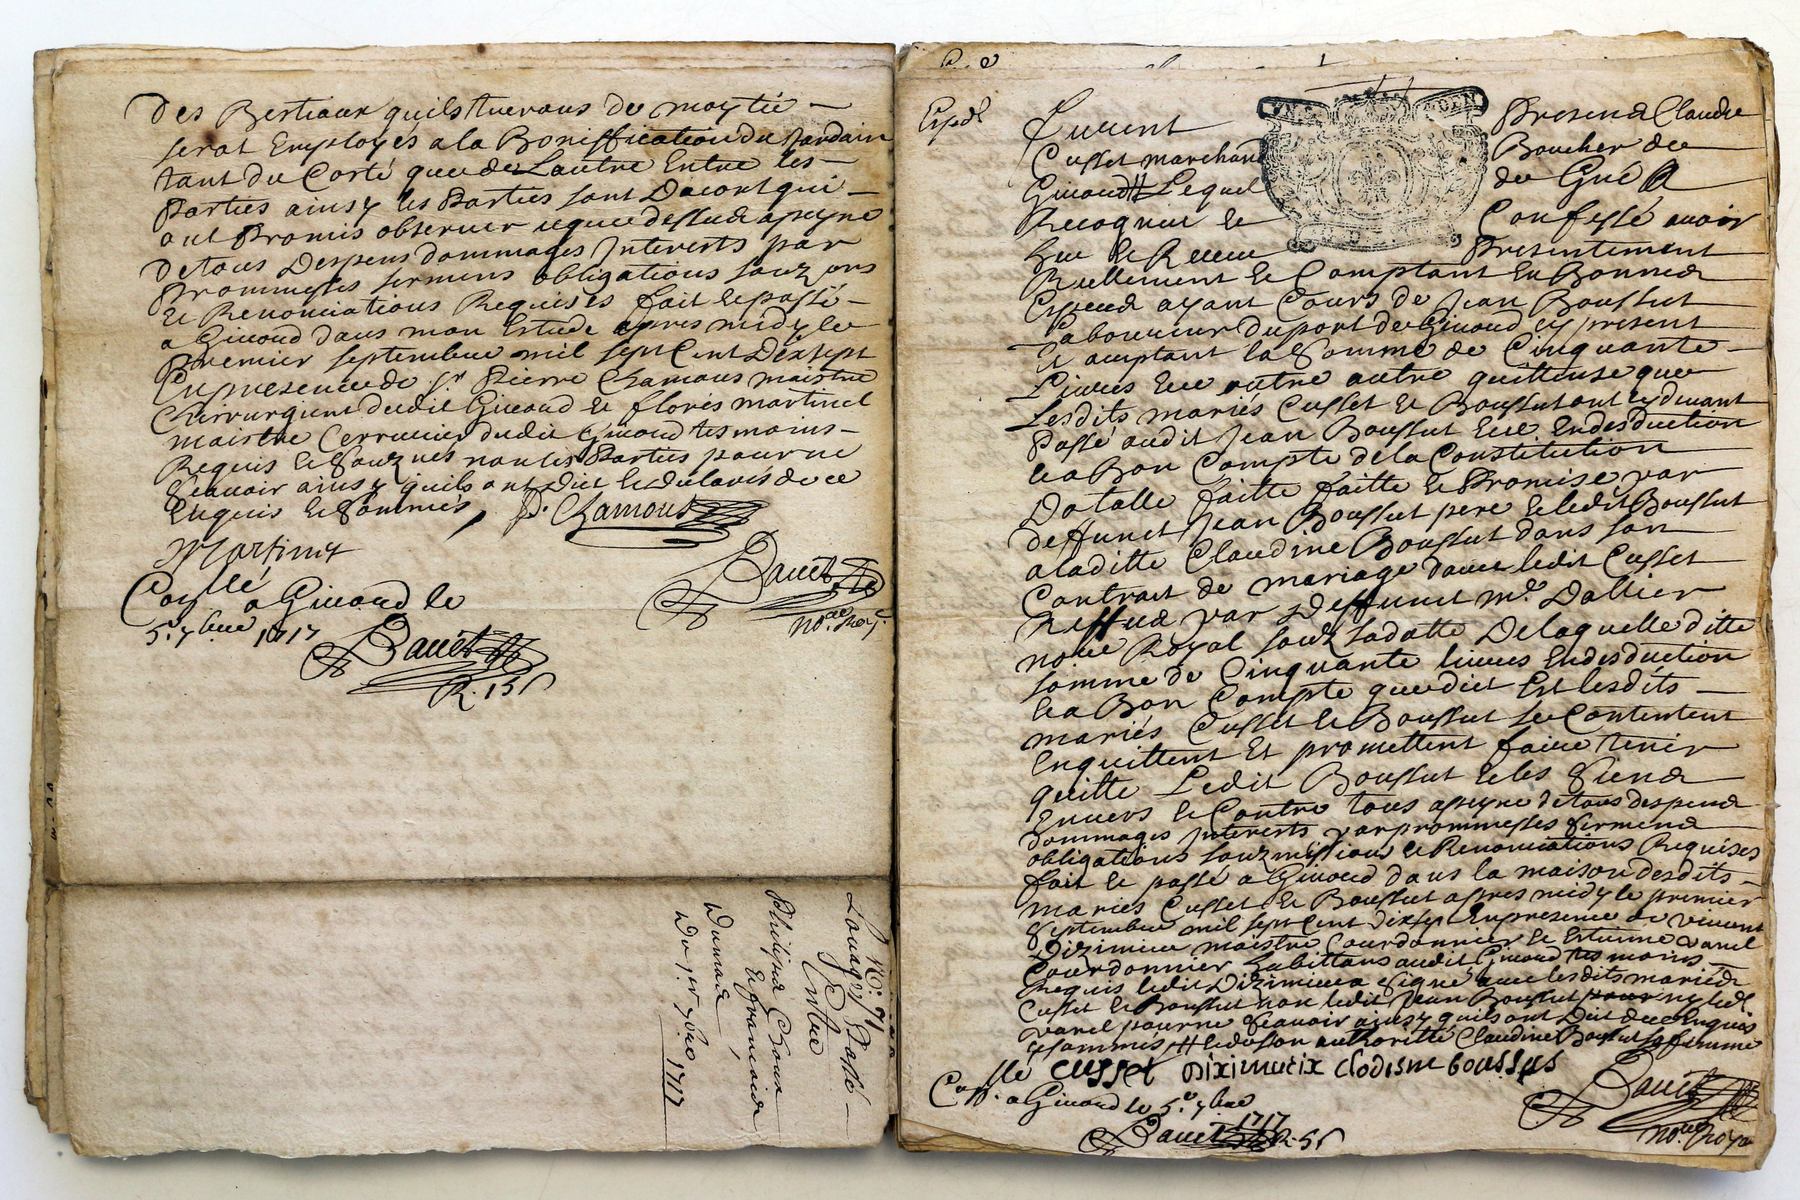 des Bestiaux quils tuerons de moytié
serat Employés a la Boniffication du Jardain
tant du Corté que de Lautre Entre les
Parties ainsy les Parties sont Dacort qui
ont Promis observer ce que dessus a peyne
de tous Despens dommages Interests par
Prommesses sermens obligations souz
et Renonciations Requises fait et passé
a Givord dans mon Estude apres midy le
Premier septembre mil sept Cent Dixsept
En presence de sr Pierre Chamous maistre
Chirurgient dudit Givord et florés martinet
maistre Cerrurier dudit Givord tesmoins
Requis et Souznes non les Parties pour ne
sçavoir ainsy quils ont Dict et declarés de ce
Enquis et sommés, P. Chamous
Martinet
Bauet
nore Roy.
Collé a Givord le
5e 7bre 1717
Bauet
R. 13 s
No. 91
Louage Passé
Entre
Philipe
Et francois
Dumas
Du 1er 7bre 1717
Exped
furent Presens Claude
Cusset marchand Boucher de
Givord Lequel de Gré
Recognut et Confessé avoir
Heu et Receu Presentement
Reellement et Comptant En Bonnes
Especes ayant Cours de Jean Boussut
Laboureur du port de Givord cy present
et acceptant la Somme de Cinquante
Livres Et outre autre quittense que
Lesdits mariés Cusset et Boussut ont cy devant
Passé audit Jean Boussut Et En desduction
et a Bon Compte de la Constitution
Dotalle faitte faitte et Promise par
deffunct Jean Boussut pere et ledit Boussut
a laditte Claudine Boussut dans son
Contrat de mariage davec ledit Cusset
Receu par Deffunct me Dallier
nore Royal souz sa datte De laquelle ditte
somme de Cinquante livres En desduction
et a Bon Compte que dict Est lesdits
mariés Cusset et Boussut se Contentent
Enquittent Et promettent faire tenir
quitte Ledit Boussut et les Siens
Envers et Contre tous a peyne de tous despens
dommages Interests par prommesses sermens
obligations souzmissions et Renonciations Requises
fait et passé a Givord dans la maison desdits
mariés Cusset et Boussut apres midy le premier
Septembre mil sept Cent dixsept En presence de vincent
Diximieu maistre Courdonnier et Estienne varel
Courdonnier habittans audit Givord tesmoins
Requis ledit Diximieu a signé avec lesdits mariés
Cusset et Boussut non ledit Jean Boussut ny led.
varel pour ne sçavoir ainsy quils ont Dict de ce Enquis
et sommés # et de son authoritté Claudine Boussut sa femme
cusset diximieux clodisne boussus
Bauet
nore Roya
Collé a Givord le 5e 7bre
1717
Bauet R. 5 s